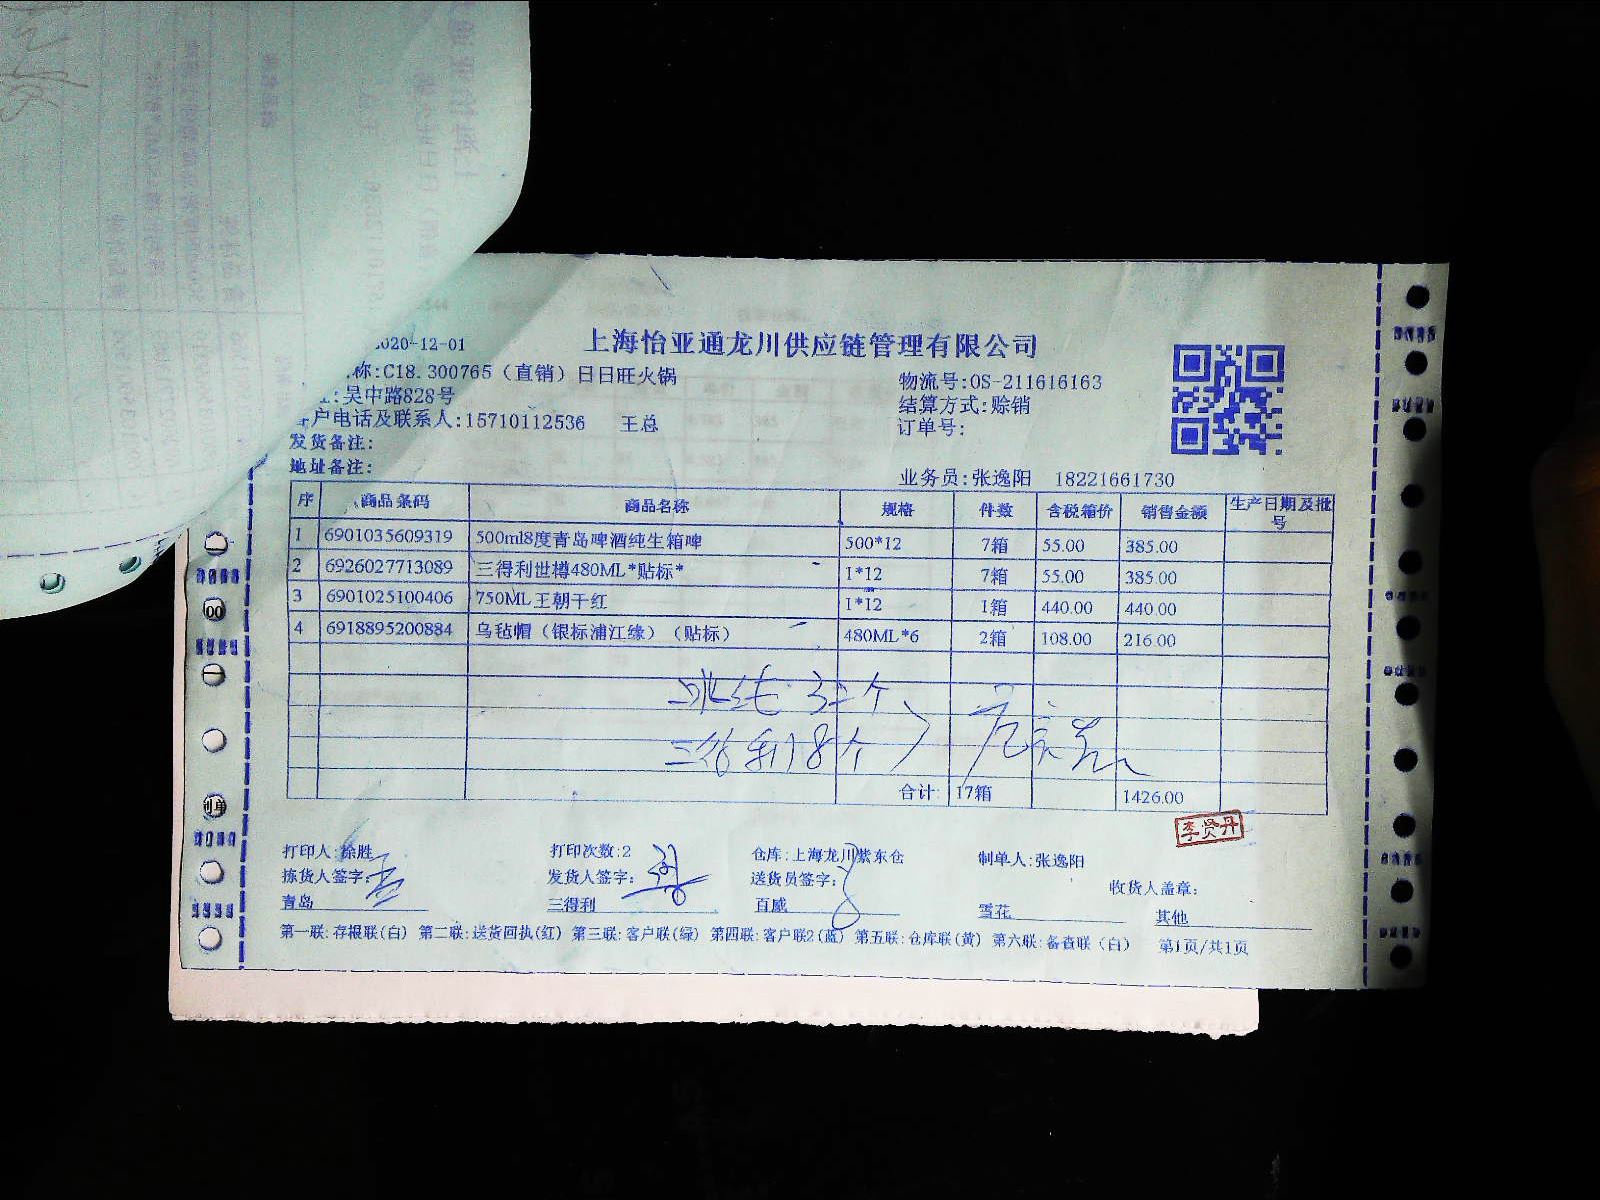 2020-12-01
上海怡亚通龙川供应链管理有限公司
称:C18.300765（直销）日日旺火锅
物流号:OS-211616163
:吴中路828号
结算方式:赊销
户电话及联系人:15710112536 王总
订单号:
发货备注:
地址备注:
业务员:张逸阳 18221661730
序 商品条码 商品名称 规格 件数 含税箱价 销售金额 生产日期及批号
1 6901035609319 500ml8度青岛啤酒纯生箱啤 500*12 7箱 55.00 385.00
2 6926027713089 三得利世樽480ML*贴标* 1*12 7箱 55.00 385.00
3 6901025100406 750ML王朝干红 1*12 1箱 440.00 440.00
4 6918895200884 乌毡帽（银标浦江缘）（贴标） 480ML*6 2箱 108.00 216.00
三得利18个
合计: 17箱 1426.00
李贤丹
打印人:徐胜 打印次数:2 仓库:上海龙川紫东仓 制单人:张逸阳
拣货人签字: 发货人签字: 送货员签字: 收货人盖章:
青岛 三得利 百威 雪花 其他
第一联:存根联(白) 第二联:送货回执(红) 第三联:客户联(绿) 第四联:客户联2(蓝) 第五联:仓库联(黄) 第六联:备查联（白） 第1页/共1页